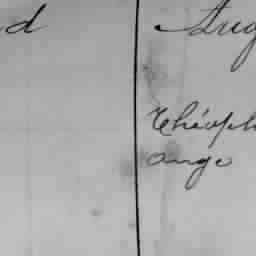 d Aug
Théoph
ange